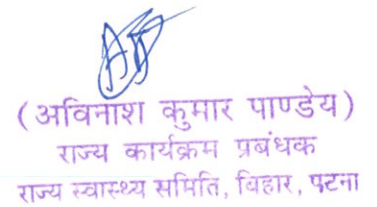 (अविनाश कुमार पाण्डेय)
राज्य कार्यक्रम प्रबंधक
राज्य स्वास्थ्य समिति, बिहार, पटना